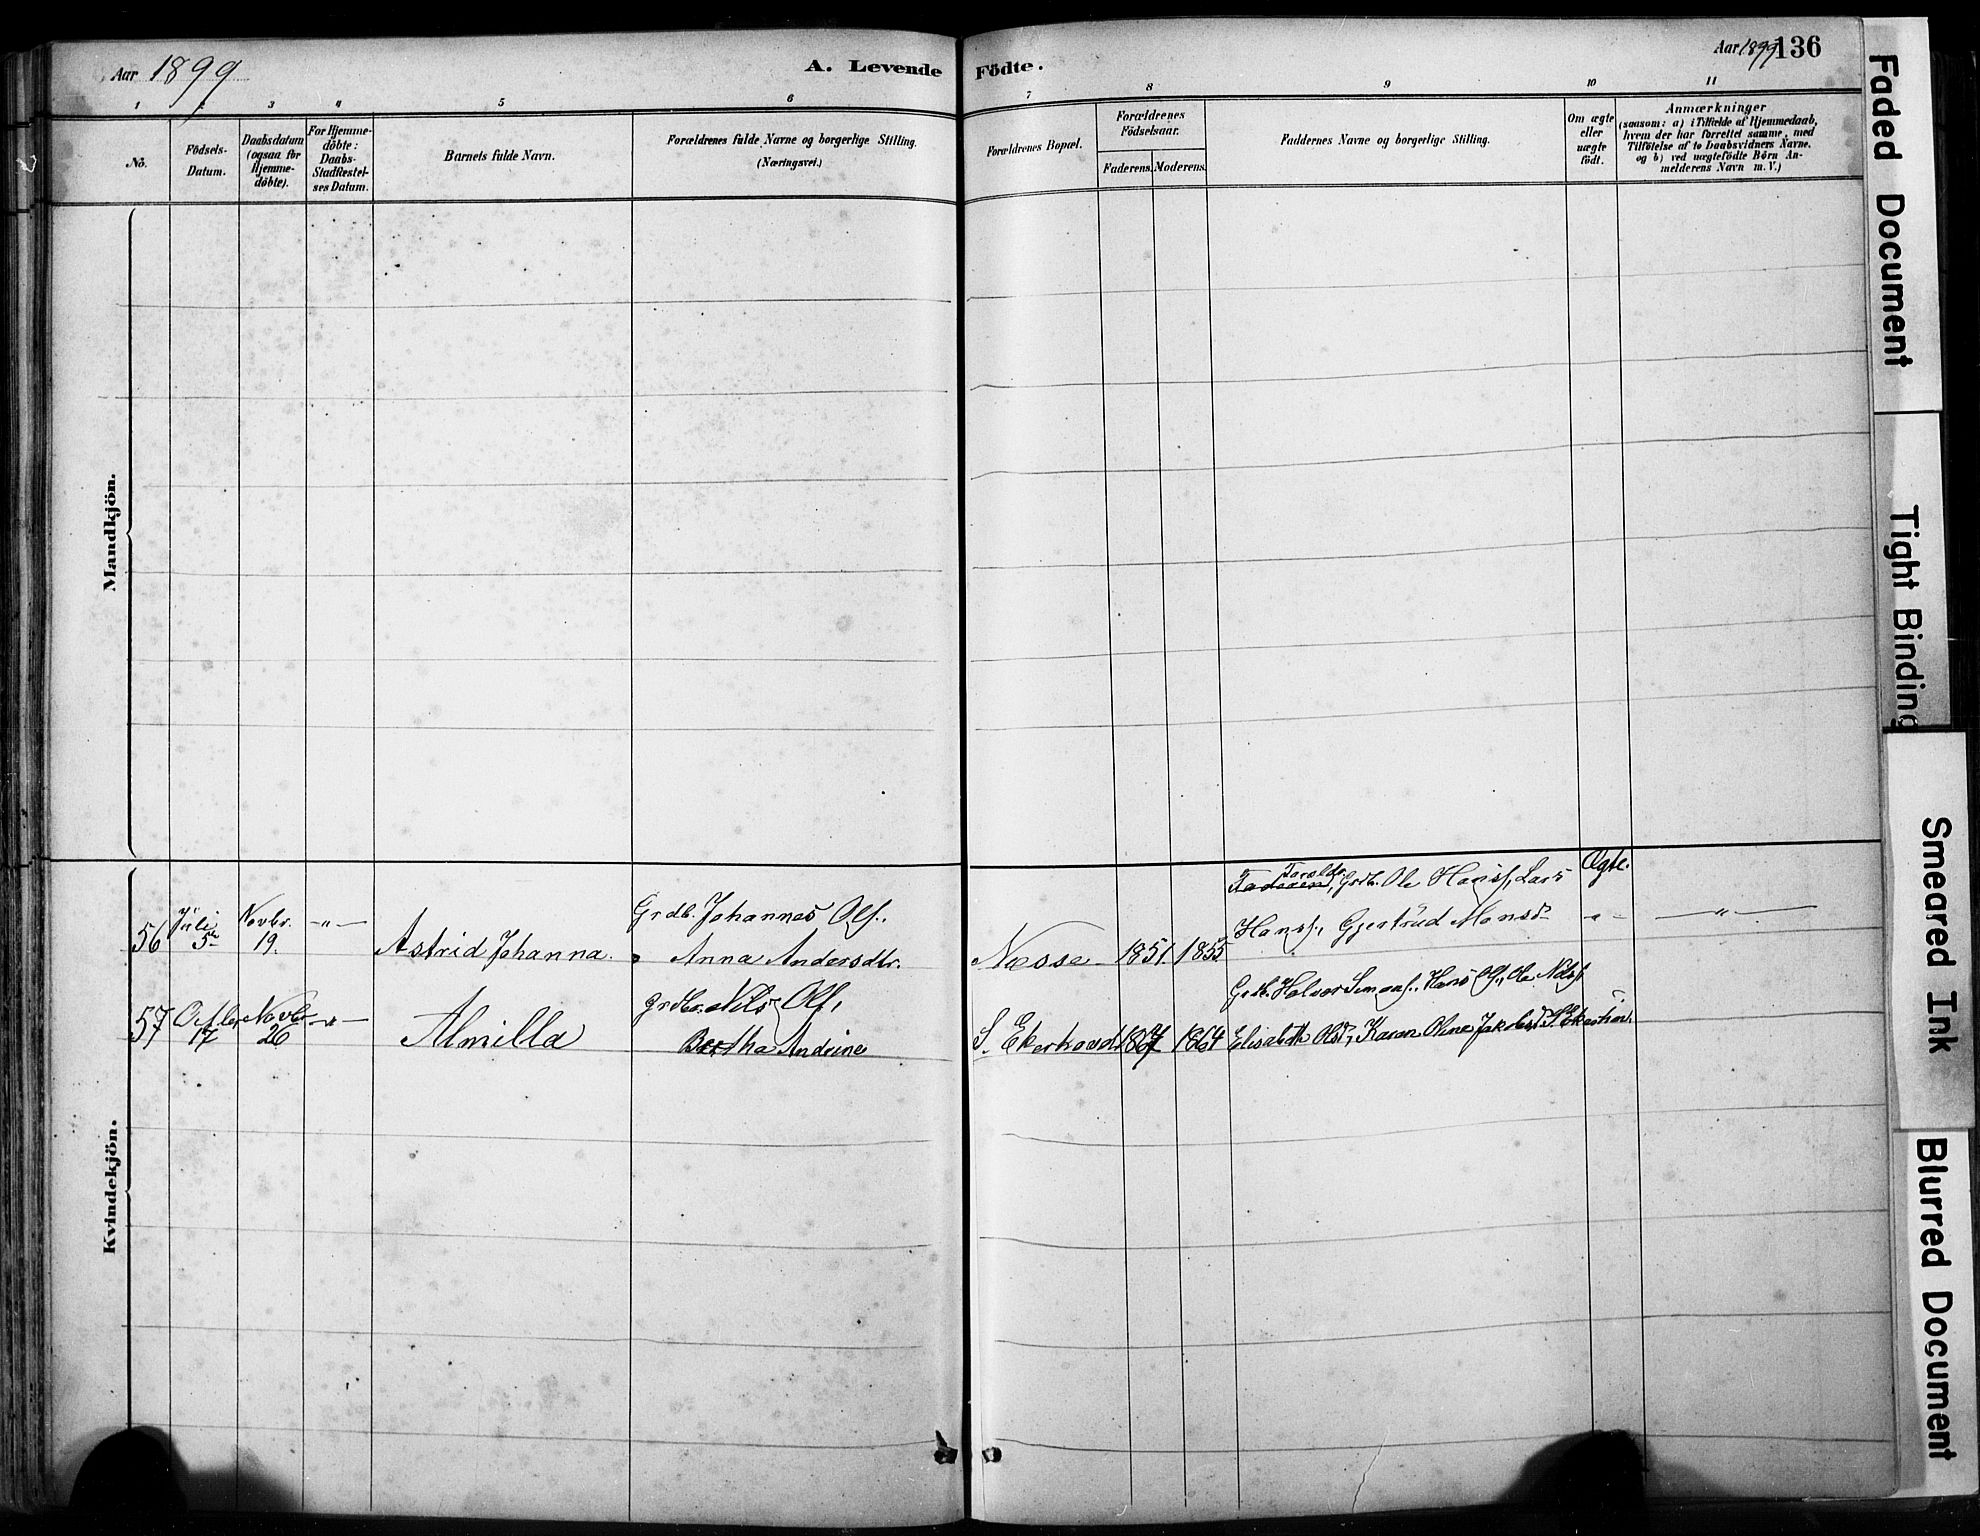 Aar 1899
A. Levende Födte.
Aar 1899
136
1 2 3 4 5 6 7 8 9 10 11
No.
Födsels-
Datum.
Daabsdatum
(ogsaa for
Hjemme-
döbte).
For Hjemme-
döbte:
Daabs-
Stadfæstel-
ses Datum.
Barnets fulde Navn.
Forældrenes fulde Navne og borgerlige Stilling.
(Næringsvei.)
Forældrenes Bopæl.
Forældrenes
Födselsaar.
Faderens. Moderens.
Faddernes Navne og borgerlige Stilling.
Om ægte
eller
uægte
födt.
Anmærkninger
(saasom: a) i Tilfælde af Hjemmedaab,
hvem der har forrettet samme, med
Tilföielse af to Daabsvidners Navne.
og b) ved uægtefödte Börn An-
melderens Navn m. V.)
Mandkjön.
Kvindekjön.
56
Juli
5
Novbr.
19.
-"-
Astrid Johanna.
Grdb. Johannes Ols.,
Anna Andersdtr.
Næsse
1851.
1855
Forældr.
Faderen, Grdb. Ole Hanss., Lars
Hanss., Gjertrud Monsd.
Ægte.
-"-
-"-
57
Octbr
17
Novbr
26
-"-
Almilla
Grdbr. Nils Ols.,
Bertha Andrine
S. Ekerhovd
1867
1864
Grdb. Halvor Simons., Hans Ols., Ole Nils.
Elisabeth Olsd., Karen Oline Jakobsd.
Faded Document
Tight Binding
Smeared Ink
Blurred Document